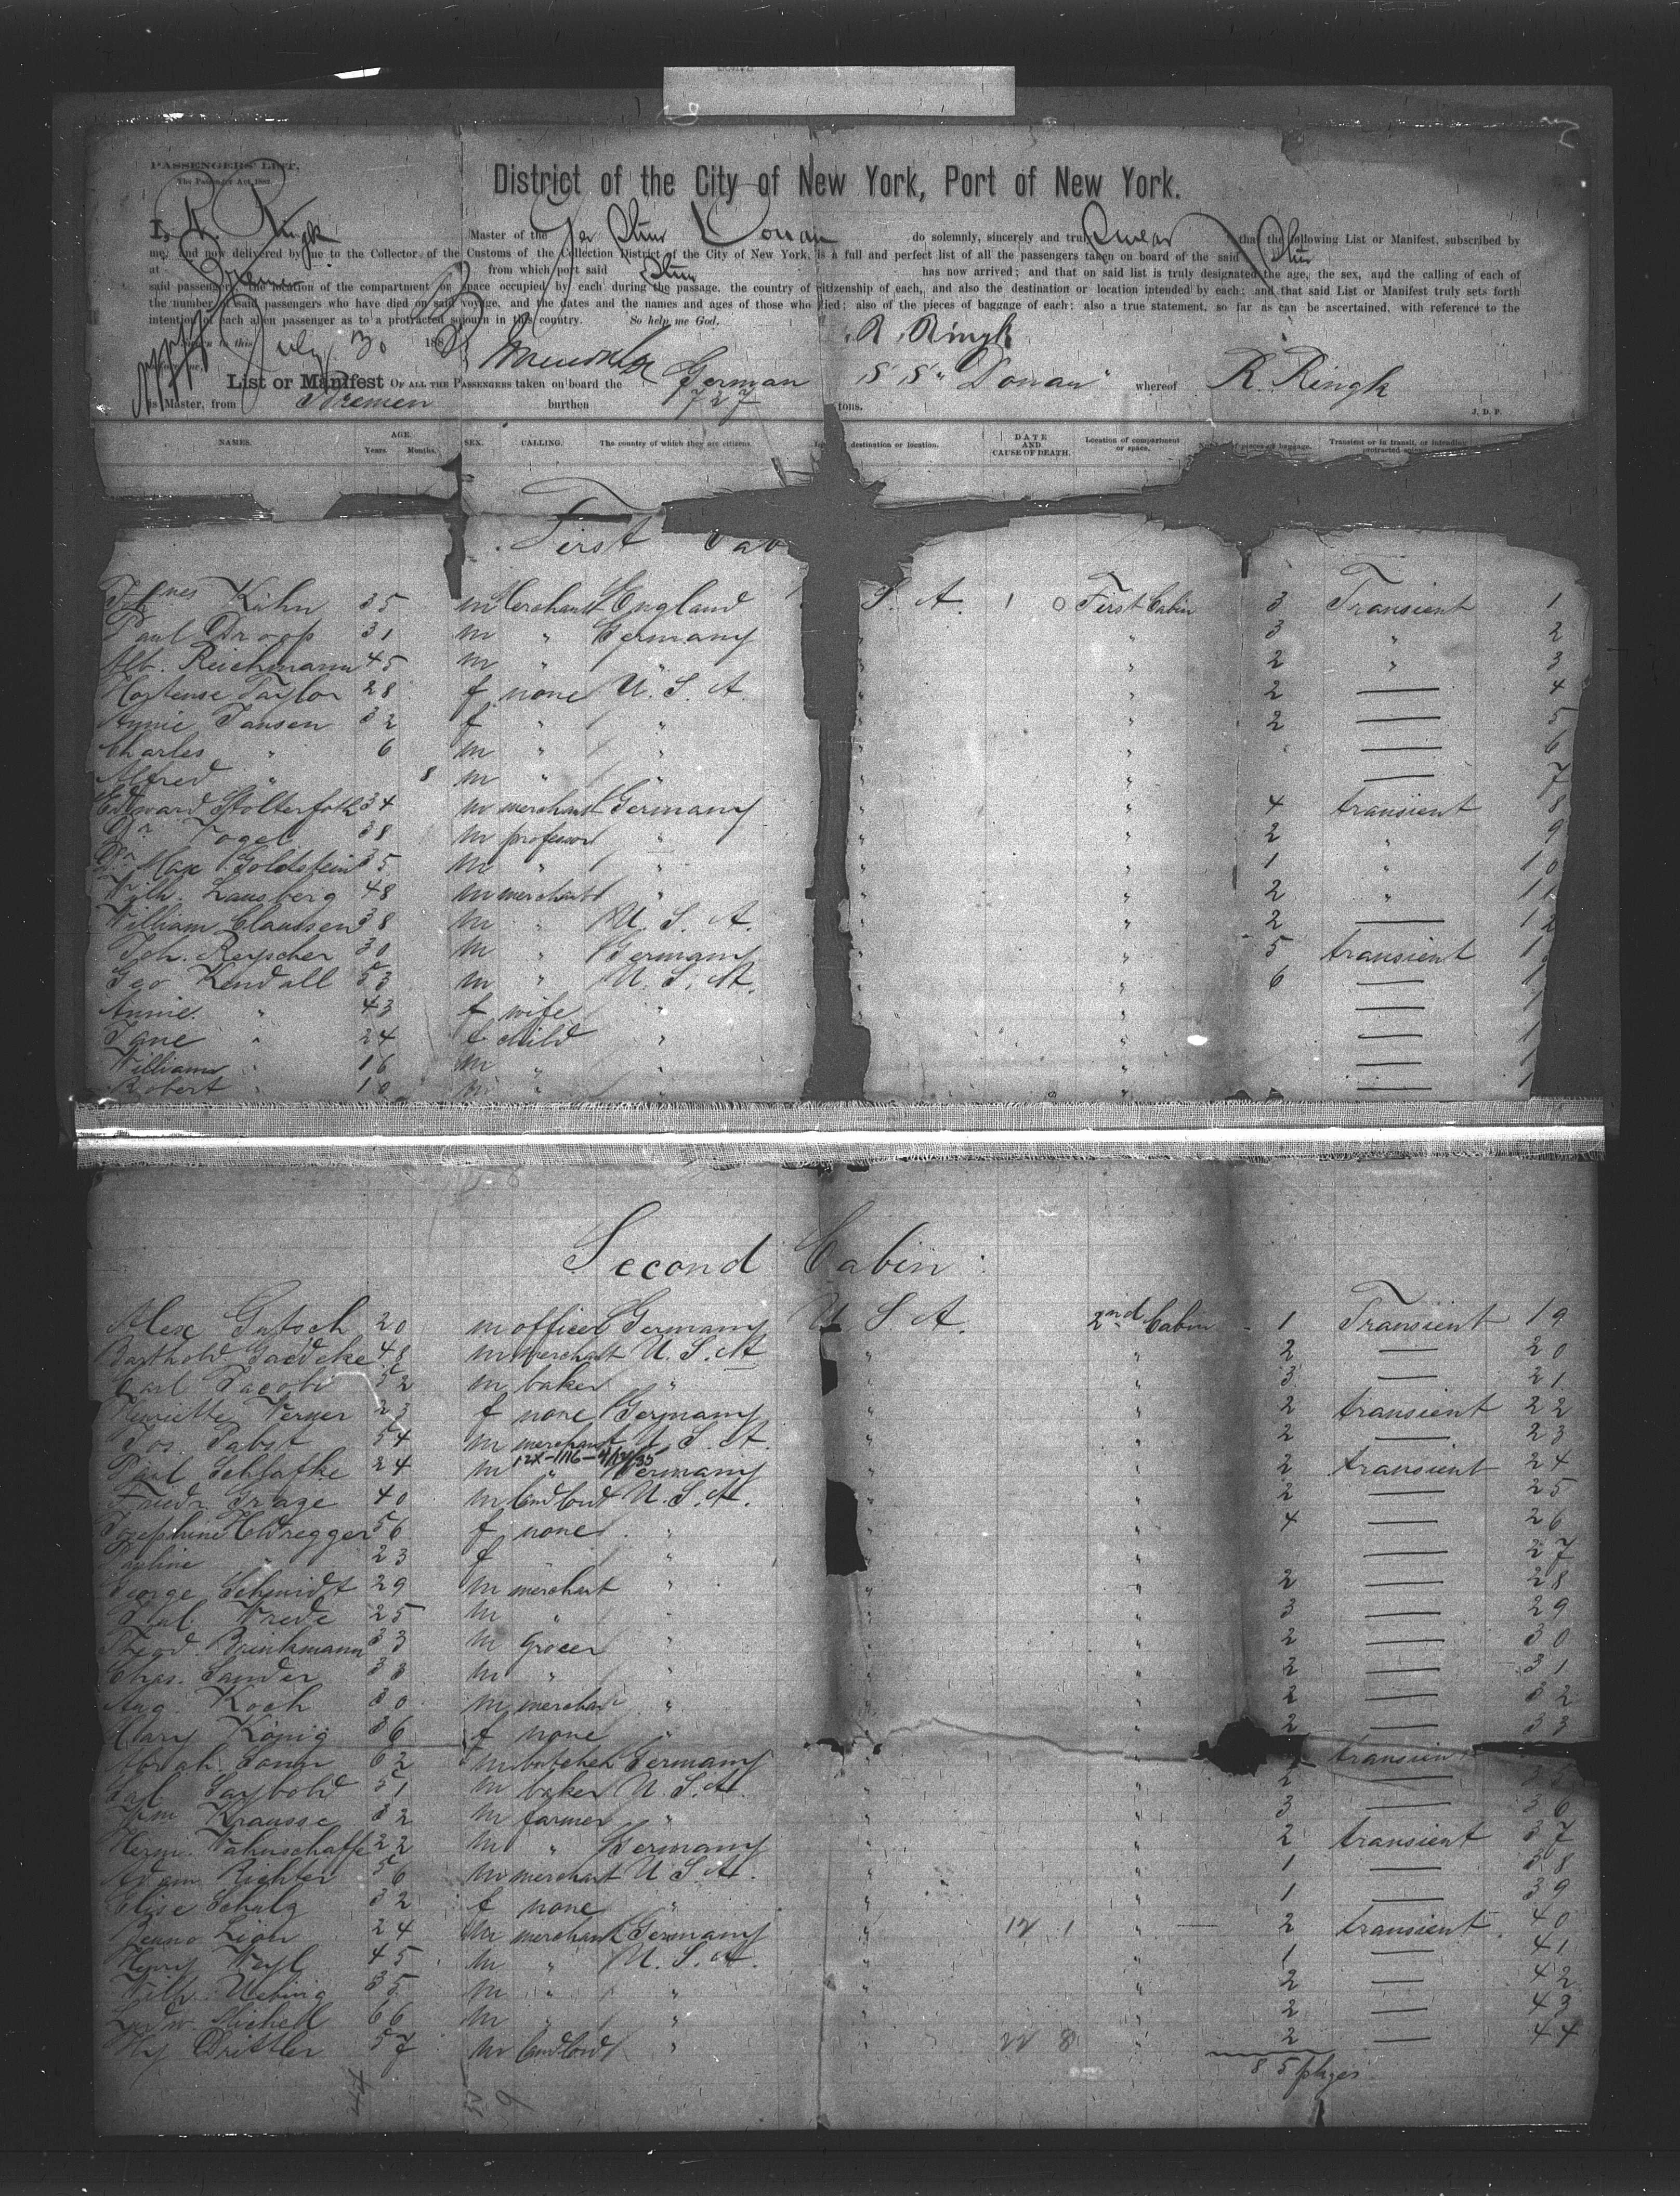 PASSENGERS' LIST.
The Passenger Act, 1882.
District of the City of New York, Port of New York.
I, R. Ringk Master of the Ger Stmr Donau do solemnly, sincerely and truly swear that the following List or Manifest, subscribed by
me, and now delivered by me to the Collector of the Customs of the Collection District of the City of New York, is a full and perfect list of all the passengers taken on board of the said Stmr
at Bremen from which port said Stmr has now arrived; and that on said list is truly designated the age, the sex, and the calling of each of
said passengers, the location of the compartment or space occupied by each during the passage, the country of citizenship of each, and also the destination or location intended by each; and that said List or Manifest truly sets forth
the number of said passengers who have died on said voyage, and the dates and the names and ages of those who died; also of the pieces of baggage of each; also a true statement, so far as can be ascertained, with reference to the
intention of each alien passenger as to a protracted sojourn in this country. So help me God.
Sworn to this July 30 188 R. Ringk
List or Manifest OF ALL THE PASSENGERS taken on board the German S S "Donau" whereof R. Ringk
is Master, from Bremen burthen 727 tons.
J. D. P.
NAMES. AGE. Years. Months. SEX. CALLING. The country of which they are citizens. destination or location. DATE AND CAUSE OF DEATH. Location of compartment or space. pieces of baggage. Transient or in transit, or intending protracted
First Cab
Kühn 35 m Merchant England S. A. 1 0 First Cabin 3 Transient 1
Paul Droop 31 m " Germany " " 3 " 2
Alb. Reichmann 45 m " " " " 2 " 3
Hortense Taylor 28 f none U. S. A. " " 2 — 4
Annie Jansen 32 f " " " " 2 — 5
Charles " 6 m " " " " — 6
Alfred " 8 m " " " " — 7
Edward Stolterfoth 34 m merchant Germany " " 4 transient 8
Dr. Vogel 38 m professor " " " 2 " 9
Dr. Max Goldstein 35 m " " " " 1 " 10
Wilh. Lausberg 48 m merchant " " " 2 " 11
William Claussen 38 m " U. S. A. " " 2 — 12
Joh. Reyscher 30 m " Germany " " 5 transient 1
Geo Kendall 53 m " U. S. A. " " 6 — 1
Annie " 43 f wife " " " — 1
Jane " 24 f child " " " — 1
William " 16 m " " " " — 1
Robert " 10 m " " " " — 1
Second Cabin:
Alex Gutsch 20 m officer Germany U S A. 2nd Cabin 1 Transient 19
Barthold Gaedcke 48 m merchant U. S. A. " " 2 — 20
Carl Jacobi 52 m baker " " " 3 — 21
Henriette Verner 23 f none Germany " " 2 transient 22
Jos. Pabst 54 m merchant U. S. A. " " 2 — 23
Paul Schlafke 24 m " Germany " " 2 transient 24
Friedr. Graze 40 m landlord U. S. A. " " 2 — 25
Josephine Holdregger 56 f none " " " 4 — 26
Pauline " 23 f " " " " — 27
George Schmidt 29 m merchant " " " 2 — 28
Wrede 25 m " " " " 3 — 29
Theod. Brinkmann 33 m grocer " " " 2 — 30
Chas. Sander 33 m " " " " 2 — 31
Aug. Koch 30 m merchan " " " 2 — 32
Mary König 36 f none " " " 2 — 33
Abrah. 62 m butcher Germany " " transien
Saybold 51 m baker U. S. A. " " 2 — 35
Wm Krausse 32 m farmer " " " 3 — 36
Herm. Wahnschaffe 22 m " Germany " " 2 transient 37
Adam Richter 56 m merchant U. S. A. " " 1 — 38
Elise Schulz 32 f none " " " 1 — 39
Benno Lion 24 m merchant Germany " 12 1 " 2 transient 40
Henry Weyl 45 m " U. S. A. " " 1 — 41
Wilh. Uebing 35 m " " " " 2 — 42
Ludw. Michell 66 m " " " " 2 — 43
Hy Drittler 57 m landlord " " 22 8 " 2 — 44
85 pkges